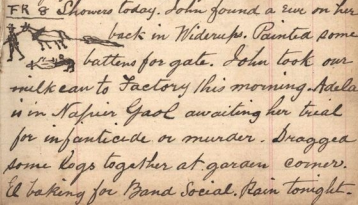 FR 8 Showers today. John found a Ewe on her
back in Widerups. Painted some
battens for gate. John took our
milk can to Factory this morning. Adela
is in Napier Gaol awaiting her trial
for infanticide or murder. Dragged
some logs together at garden corner.
El baking for Band Social. Rain tonight-